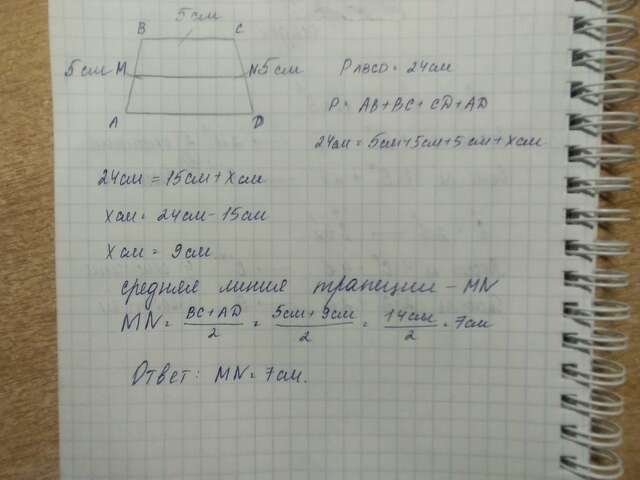 5см
B C
5см M N 5см
A D
PABCD = 24см
P = AB + BC + CD + AD
24см = 5см + 5см + 5см + Xсм
24см = 15см + Xсм
Xсм = 24см - 15см
Xсм = 9см
средняя линия трапеции - MN
MN = BC + AD / 2 = 5см + 9см / 2 = 14см / 2 = 7см
Ответ: MN = 7см.